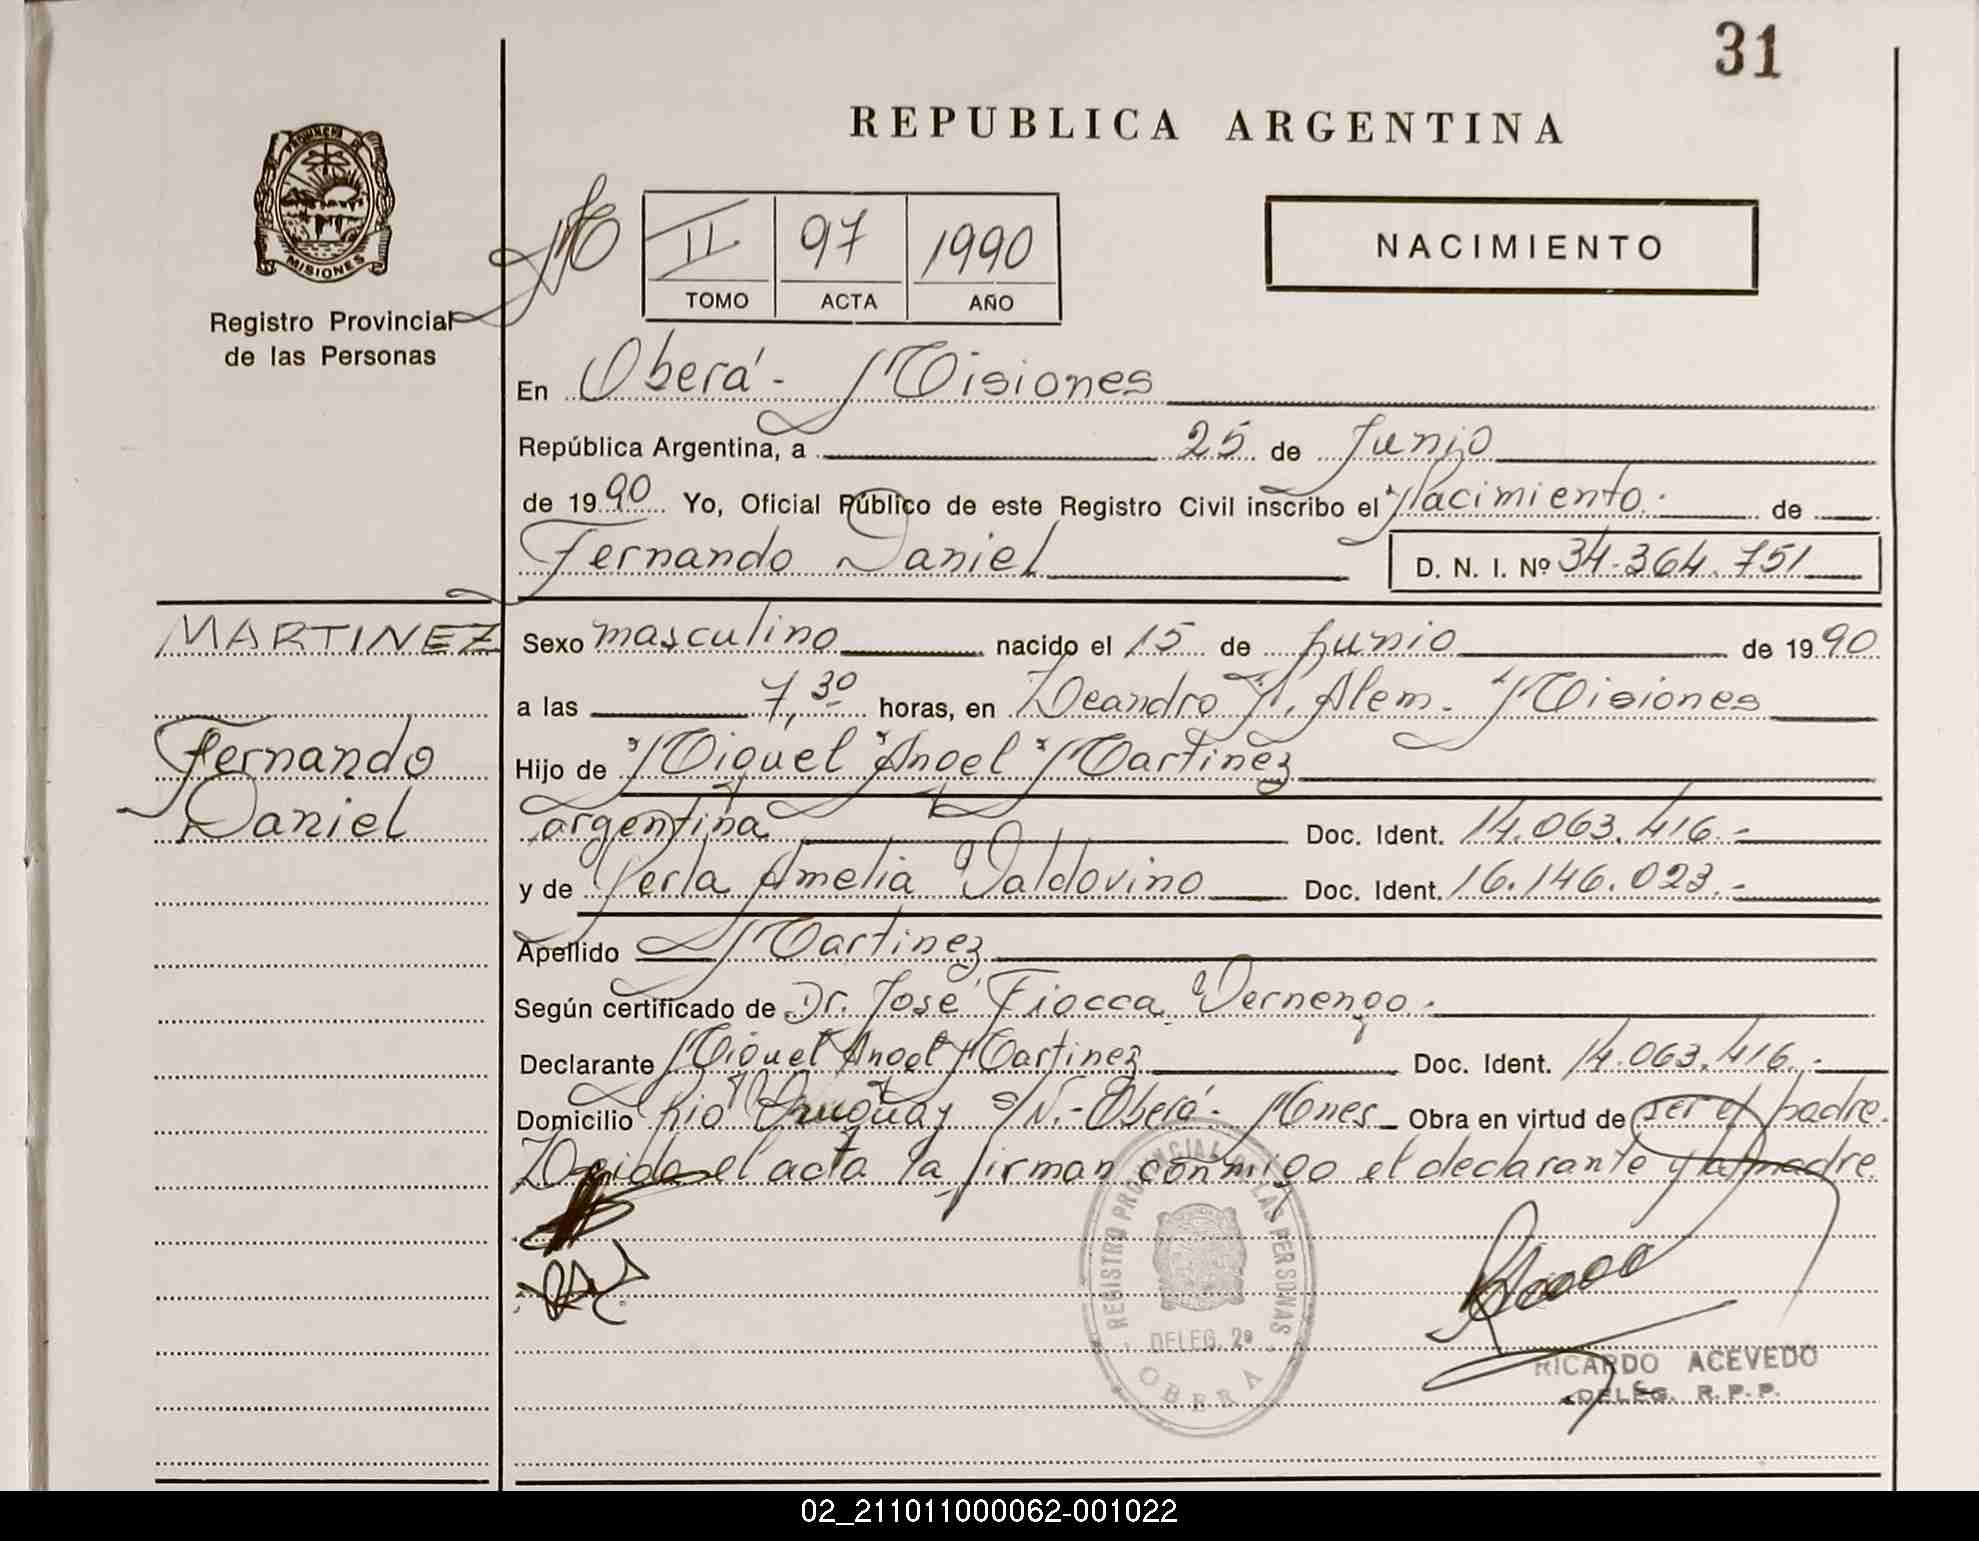 31
REPUBLICA ARGENTINA
PROVINCIA DE
MISIONES
Registro Provincial
de las Personas
II 97 1990
TOMO ACTA AÑO
NACIMIENTO
En Oberá - Misiones
República Argentina, a 25 de Junio
de 1990 Yo, Oficial Público de este Registro Civil inscribo el Nacimiento. de
Fernando Daniel D. N. I. Nº 34.364.751
MARTINEZ
Fernando
Daniel
Sexo masculino nacido el 15 de junio de 1990
a las 7,30 horas, en Leandro N. Alem - Misiones
Hijo de Miguel Angel Martinez
argentina Doc. Ident. 14.063.416.-
y de Perla Amelia Valdovino Doc. Ident. 16.146.023.-
Apellido Martinez
Según certificado de Dr. José Fiocca Vernengo.
Declarante Miguel Angel Martinez Doc. Ident. 14.063.416.-
Domicilio Río Uruguay s/N.- Oberá - Mones Obra en virtud de ser el padre.
Leida el acta la firman conmigo el declarante y la madre.
REGISTRO PROVINCIAL DE LAS PERSONAS
DELEG. 2ª
OBERA
RICARDO ACEVEDO
DELEG. R.P.P.
02_211011000062-001022